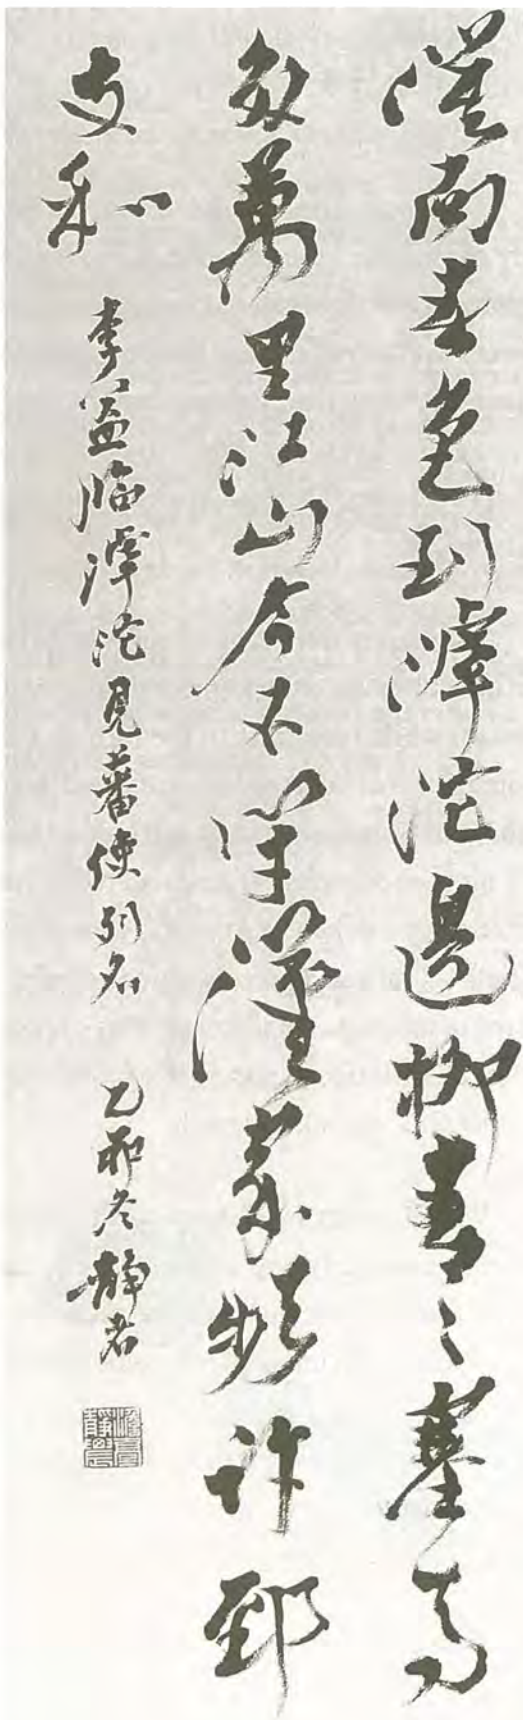 漠南春色到滹沱邊柳青〻塞馬
多萬里江山今不閉漢家頻許郅
支和
李益臨滹沱見蕃使列名 乙卯冬靜者
澹臺靜農